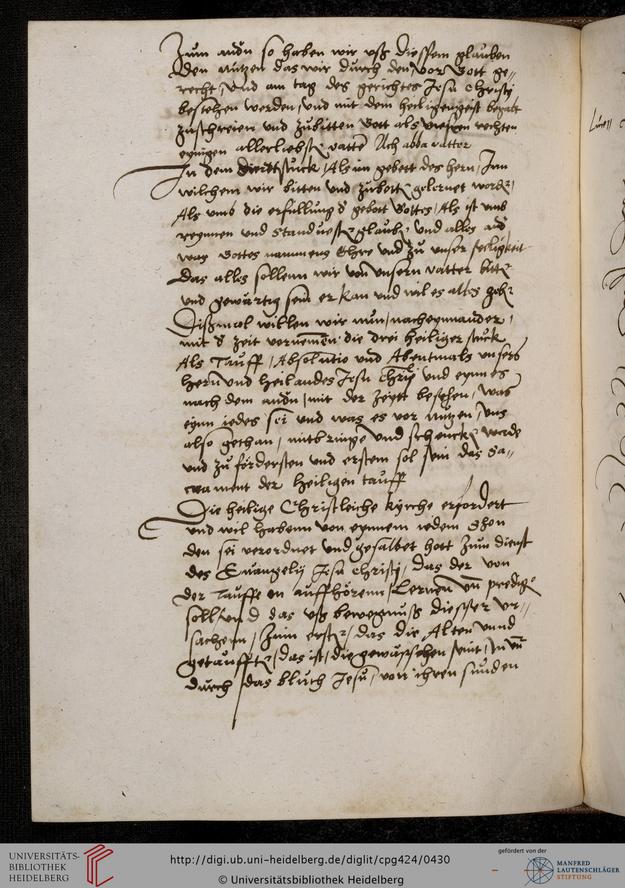 Zum andn so haben wir uß dießem glauben
den nutzen das wir durch den vor Gott ge-
recht, und am tag des gerichtes Jesu Christj
bestehen werden, und mit dem heiligengeist begabt
zuschreien und zubitten Gott als unseren rechten
eynigen allerliebstn vatter Ach abba vatter
In dem Vierdtstuck, Als im gebett des hern, Inn
wilchem wir bitten und zubettn gelernet werdn,
Als umb die erfullung d gebott Gottes, Als ist umb
reynnen und standuestn glaubn und alles and
was Gottes nammens Ehre und zu unser seeligkeit
das alles sollenn wir von unserm vatter bittn
und gewartig sein er kan und wil es alles gebn
Dißmal willen wir nun, nacheynnander,
mit d zeit vernemen die drei heiliger stuck
Als Tauff, Absolutio und Abentmals unsers
hern und heilandes Jesu Chrj und eynn es
nach dem andn, mit der Zeytt besehen, was
eynn iedes sei und was es vor nutzen, uns
also gethan, mitbringe und schenckn werde
und zu fördersten und erstem sol sein das Sa-
crament der heiligen tauff
Die heilige Christleiche kyrche erfordert
und wil habenn von eynnem iedem
den sei verordnet und gesalbet hott zum dienst
des Euangelij Jesu Christj, das der von
der Tauffe en auffhörenn, Lernen un predign
soll, und das uß bewegnuß diesser Ur-
sachenn, Zum erstn, das die Alten unnd
getaufftn, das ist, die gewasschen seint, in un
durch das bluth Jesu, von ihren sunden
UNIVERSITÄTS-
BIBLIOTHEK
HEIDELBERG
http://digi.ub.uni-heidelberg.de/diglit/cpg424/0430
© Universitätsbibliothek Heidelberg
gefördert von der
MANFRED
LAUTENSCHLÄGER
STIFTUNG